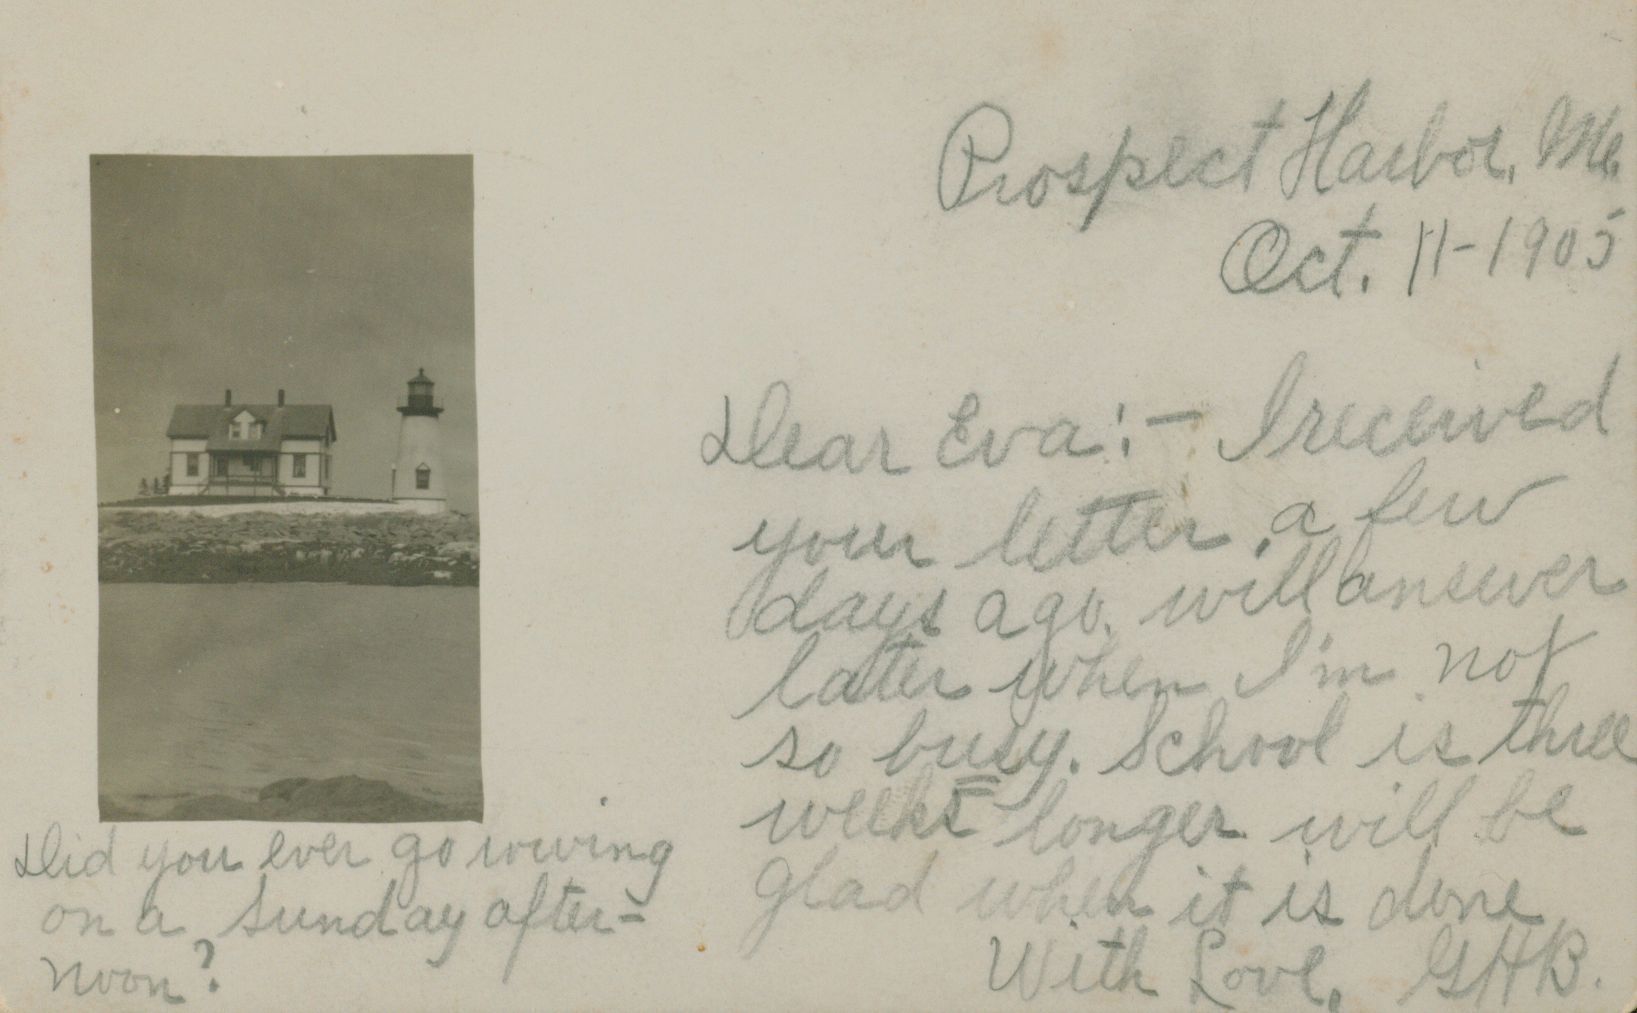 Prospect Harbor, Me.
Oct. 11-1905
Dear Eva:- I received
your letter, a few
days ago. will answer
later when I'm not
so busy. School is three
weeks longer will be
glad when it is done
With Love, GHB.
Did you ever go rowing
on a Sunday after-
noon?